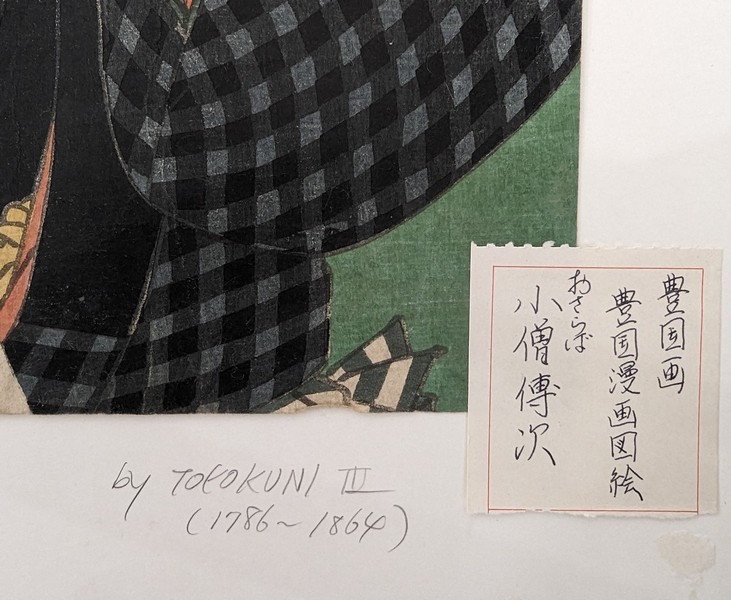 豊国画
豊国漫画図絵
おさらば
小僧傳次
by TOYOKUNI III
(1786~1864)